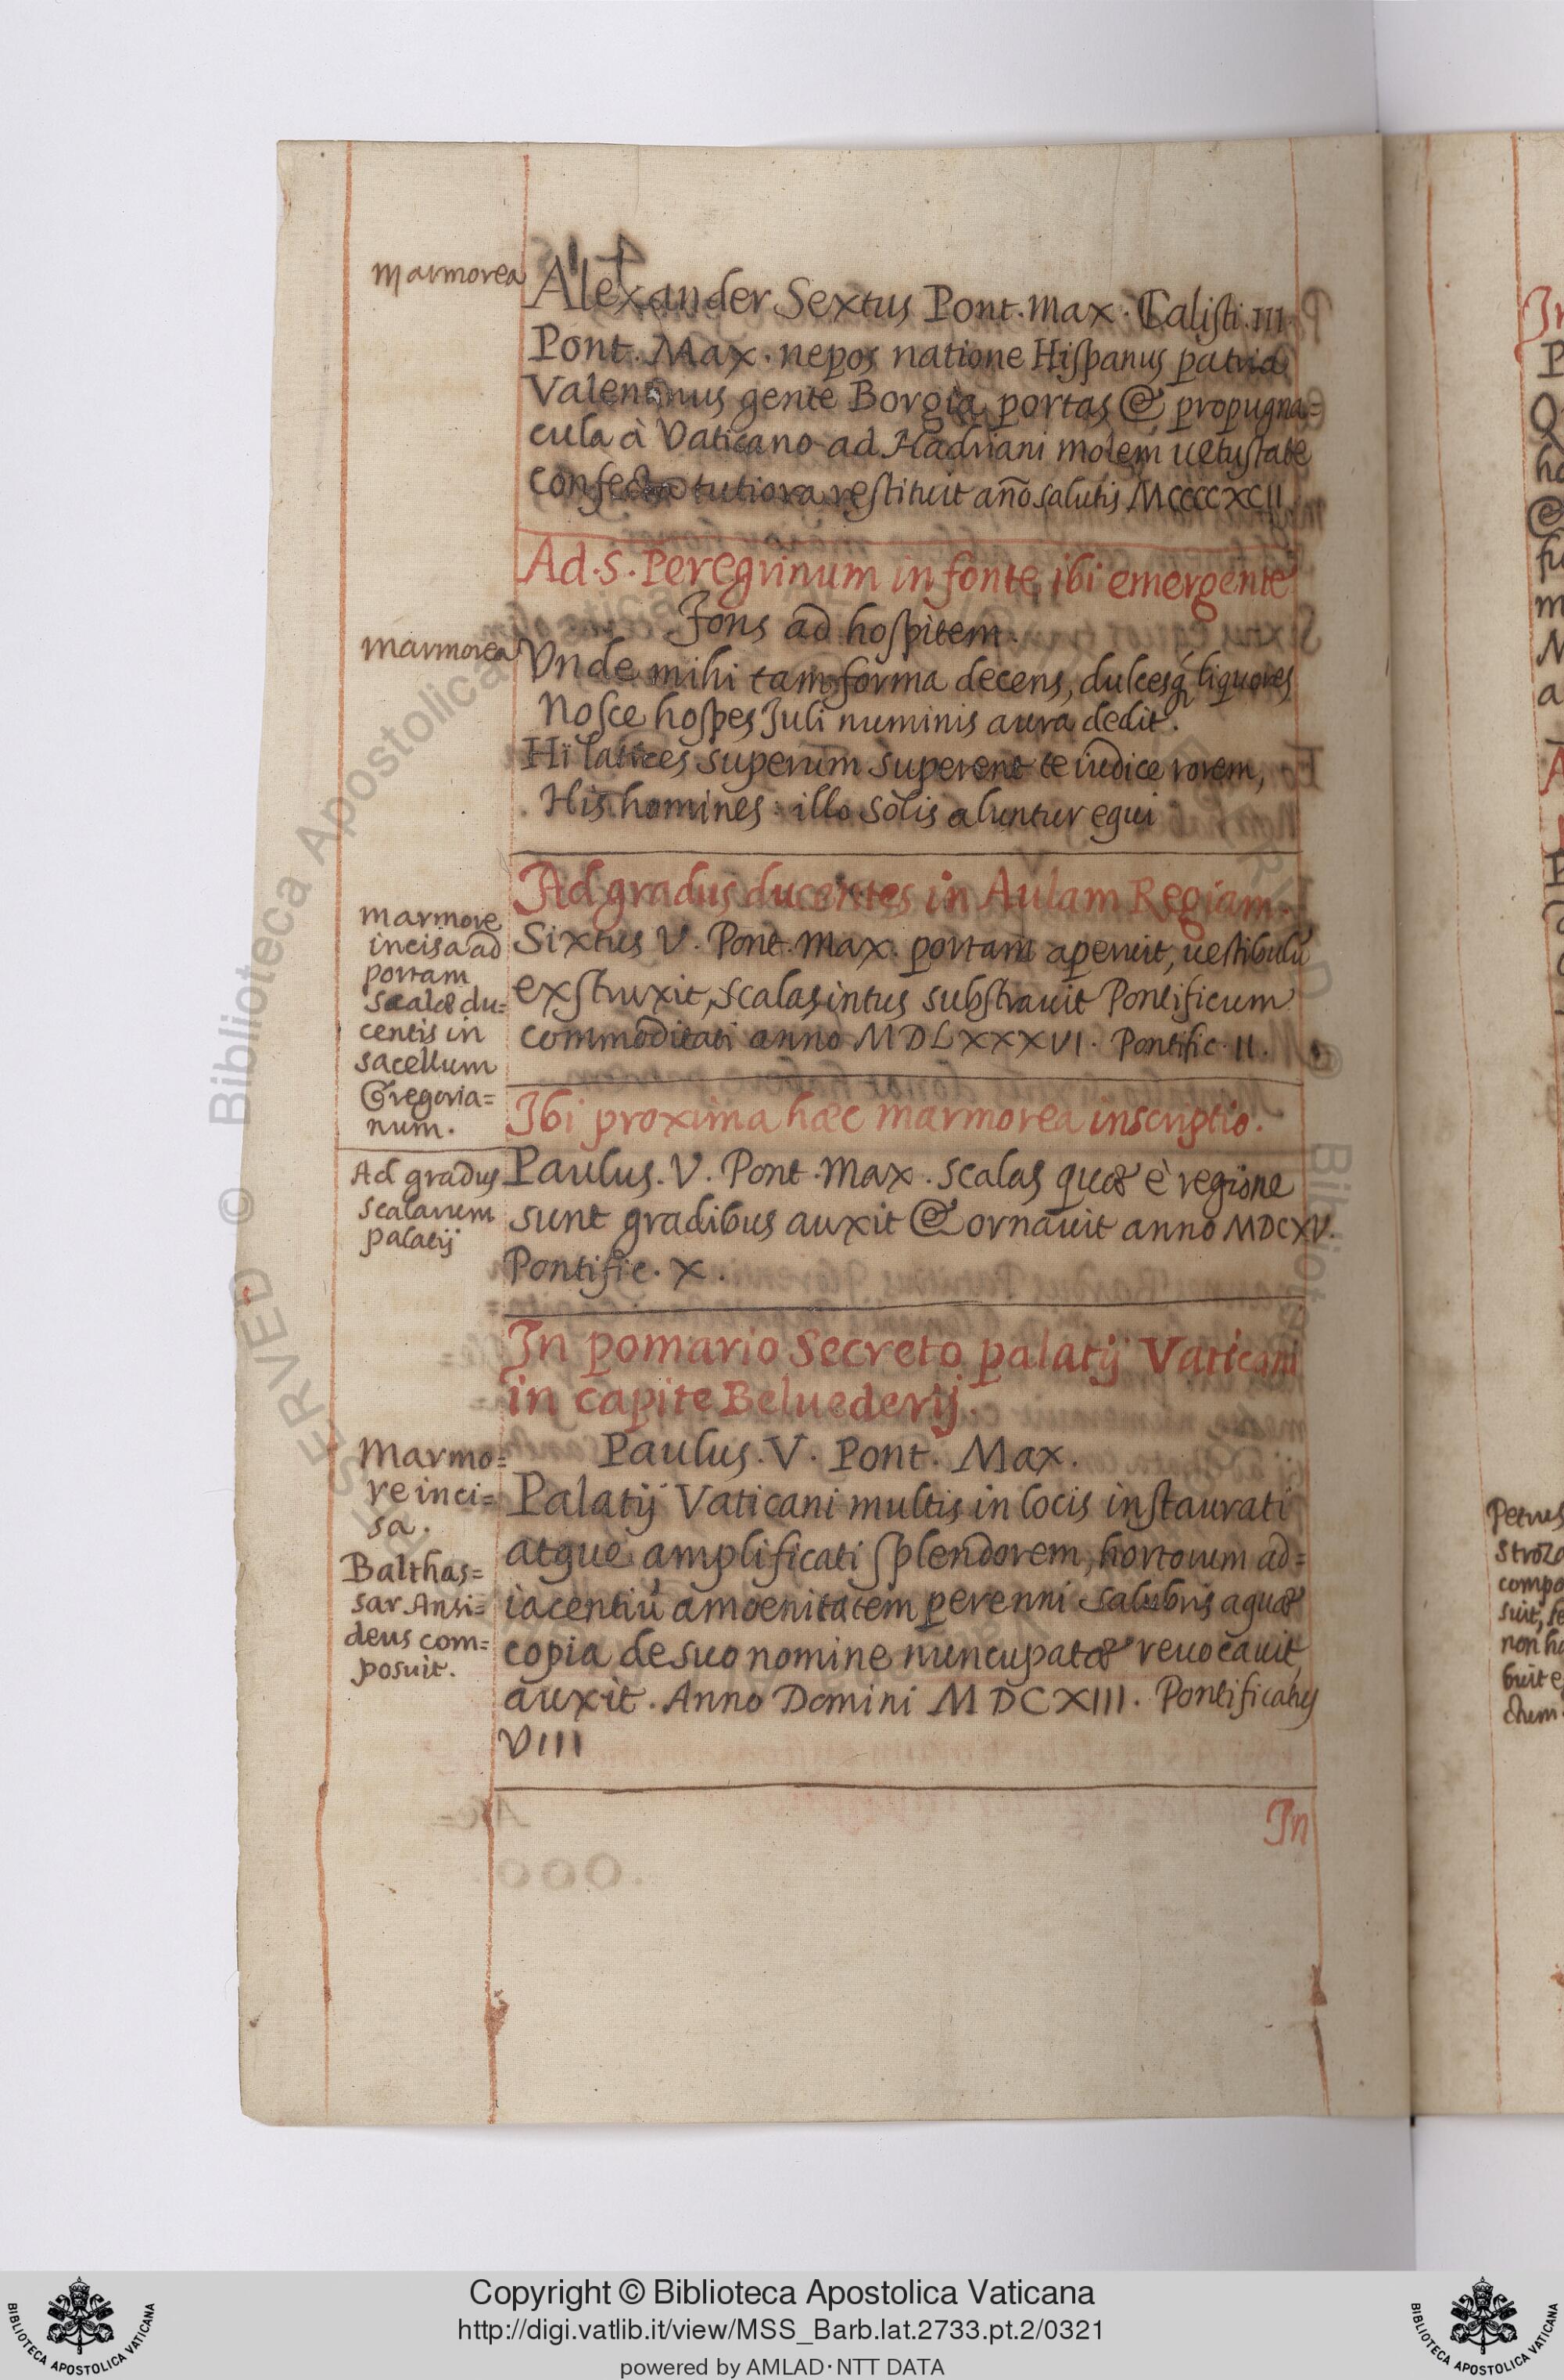 marmorea
Alexander Sextus Pont. Max. Calisti. III.
Pont. Max. nepos natione Hispanus patria
Valentinus gente Borgia portas & propugna=
cula à Vaticano ad Hadriani molem uetustate
confecta tutiora restituit año salutis MCCCCXCII.
Ad. S. Peregrinum in fonte ibi emergente
Fons ad hospitem.
marmorea
Vnde mihi tam forma decens, dulcesq́ liquores
Nosce hospes Juli numinis aura dedit.
Hi latices superum superent te iudice rorem,
His homines: illo solis aluntur equi
Ad gradus ducentes in Aulam Regiam.
marmore
incisa ad
portam
scalæ du=
centis in
sacellum
Gregoria=
num.
Sixtus V. Pont. Max. portam aperuit, uestibulũ
exstruxit, scalas intus substrauit Pontificum
commoditati anno MDLXXXVI. Pontific. II.
Ibi proxima hæc marmorea inscriptio.
Ad gradus
scalarum
palatij
Paulus. V. Pont. Max. scalas quæ è regione
sunt gradibus auxit & ornauit anno MDCXV.
Pontific. X.
In pomario Secreto palatij Vaticani
in capite Beluederij.
Paulus. V. Pont. Max.
Marmo=
re inci=
sa.
Balthas=
sar Ansi=
deus com=
posuit.
Palatij Vaticani multis in locis instaurati
atque amplificati splendorem, hortorum ad=
iacentiũ amoenitatem perenni salubris aquæ
copia de suo nomine nuncupatæ reuocauit,
auxit. Anno Domini MDCXIII. Pontificatus
VIII
In
Petrus
Stroza
compo
suit, se
non ha
buit e
dium.
Copyright © Biblioteca Apostolica Vaticana
http://digi.vatlib.it/view/MSS_Barb.lat.2733.pt.2/0321
powered by AMLAD·NTT DATA
BIBLIOTECA APOSTOLICA VATICANA
BIBLIOTECA APOSTOLICA VATICANA